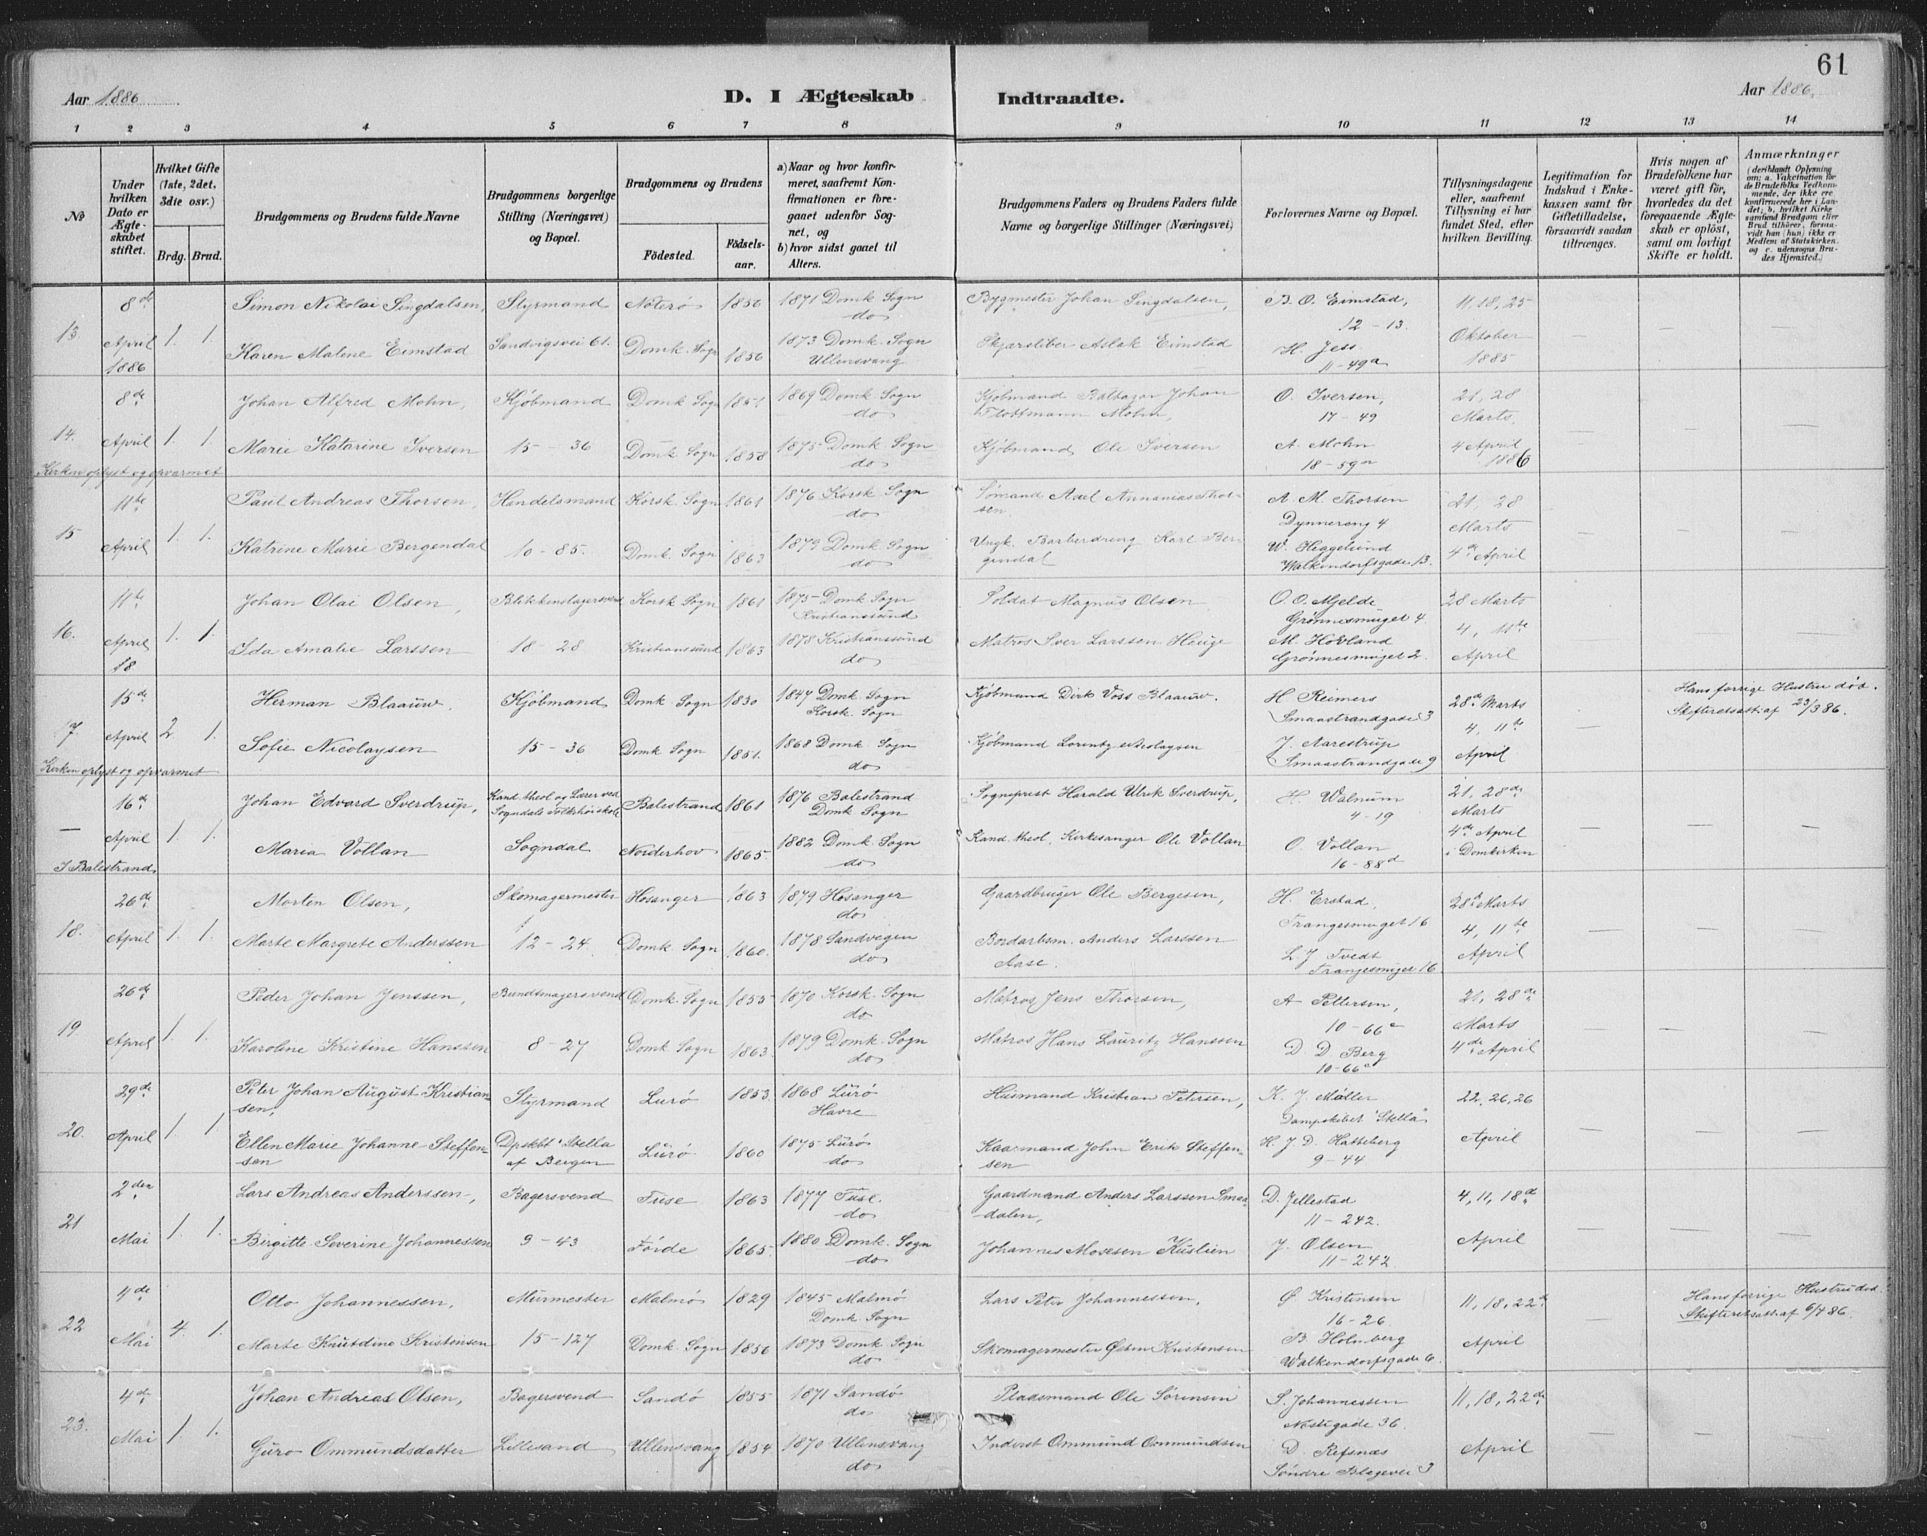 61
Aar 1886
D. I Ægteskab Indtraadte.
Aar 1886.
1 2 3 4 5 6 7 8 9 10 11 12 13 14
No
Under hvilken Dato er Ægteskabet stiftet.
Hvilket Gifte (1ste, 2det, 3die osv.)
Brdg. Brud.
Brudgommens og Brudens fulde Navne
Brudgommens borgerlige Stilling (Næringsvei) og Bopæl.
Brudgommens og Brudens
Födested. Födselsaar.
a) Naar og hvor konfirmeret, saafremt Konfirmationen er foregaaet udenfor Sognet, og
b) hvor sidst gaaet til Alters.
Brudgommens Faders og Brudens Faders fulde Navne og borgerlige Stillinger (Næringsvei)
Forlovernes Navne og Bopæl.
Tillysningsdagene eller, saafremt Tillysning ei har fundet Sted, efter hvilken Bevilling.
Legitimation for Indskud i Enkekassen samt for Giftetilladelse, forsaavidt saadan tiltrænges.
Hvis nogen af Brudefolkene har været gift för, hvorledes da det foregaaende Ægteskab er oplöst, samt om lovligt Skifte er holdt.
Anmærkninger
(deriblandt Oplysning om: a. Vakcination for de Brudefolks Vedkommende, der ikke ere konfirmerede her i Landet; b. hvilket Kirkesamfund Brudgom eller Brud tilhörer, forsaavidt han (hun) ikke er Medlem af Statskirken. og c. udensogns Brudes Hjemsted.)
13
8de April 1886
1. 1.
Simon Nikolai Singdalsen, Styrmand Noterø 1856 1871 Domk. Sogn
do
Bygmester Johan Singdalsen, B. O. Eimstad, 12-13. 11, 18, 25
Karen Malene Eimstad Sandvigsvei 61. Domk. Sogn 1856 1873 Domk. Sogn
Ullensvang
Aslak Eimstad H. Jess 11-49a Oktober 1885
14.
8de April
1. 1.
Johan Alfred Mohn, Kjøbmand Domk. Sogn 1851 1869 Domk. Sogn
do
Kjøbmand Baltazar Johan Mohn, O. Iversen, 17-49 21, 28 Marts,
Marie Katarine Iversen 15-36 Domk. Sogn 1858 1875 Domk. Sogn
do
Kjøbmand Ole Iversen A. Mohn 18-59a 4 April 1886
Kirken oplyst og opvarmet
15
11te April
1. 1.
Paul Andreas Thorsen, Handelsmand Korsk. Sogn 1861 1876 Korsk. Sogn
do
Sømand Axel Annanias Thorsen. A. M. Thorsen 21, 28 Marts
Katrine Marie Bergendal 10-85. Domk. Sogn 1863 1879 Domk. Sogn
do
Ungk. Barberdreng Karl Bergendal W. Heggelund Walkendorfsgade 13. 4de April
16.
11te April 18
1. 1.
Johan Olai Olsen, Blikkenslagersvend Korsk. Sogn 1861 1875 Domk. Sogn
Kristianssund
Soldat Magnus Olsen O. O. Mjelde Grønnesmuget 4. 28 Marts
Ida Amalie Larssen 18-28 Kristianssund 1863 1878 Kristianssund
do
Matros Iver Larssen Hauge M. Hovland Grønnesmuget 2. 4, 11te April
17
15de April
2 1.
Herman Blaauw. Kjøbmand Domk. Sogn 1830 1847 Domk. Sogn
Korsk. Sogn
Kjøbmand Dirk Voss Blaauw. H Reimers Smaastrandgade 3 28de Marts
Hans forrige Hustru død.
Skifteretsatt. af 23/3 86.
Sofie Nicolaysen 15-36 Domk. Sogn 1851. 1868 Domk. Sogn
do
Kjøbmand Lorentz Nicolaysen J. Aarestrup Smaastrandgade 9 4, 11te April
Kirken oplyst og opvarmet
—
16de April
1. 1.
Johan Edvard Sverdrup, Kand. theol. og Lærer ved Sogndals Folkehøiskole Balestrand 1861 1876 Balestrand
Domk. Sogn
Sogneprest Harald Ulrik Sverdrup, H. Walnum 4-19 21, 28de Marts
Maria Vollan Sogndal Norderhov 1865 1882 Domk. Sogn
do
Kand. theol. Kirkesanger Ole Vollan O. Vollan 16-88d 4de April i Domkirken
I Balestrand
18.
26de April
1. 1.
Morten Olsen, Skomagermester Hosanger 1863 1879 Hosanger
do
Gaardbruger Ole Bergesen, H. Erstad, Trangesmuget 16 28de Marts
Marte Margrete Anderssen 12-24. Domk. Sogn 1860. 1878 Sandvegen
do
Bordarbm. Anders Larssen Aase. L. J. Tvedt Trangesmuget 16. 4, 11te April
19
26de April
1 1
Peder Johan Jenssen, Bundtmagersvend Domk. Sogn 1855 1870 Korsk. Sogn
do
Matros Jens Thorsen, A Pettersen, 10-66c 21, 28de Marts
Karoline Kristine Hanssen 8-27 Domk. Sogn 1863 1879 Domk. Sogn
do
Matros Hans Lauritz Hanssen D. D. Berg 10-66c 4de April
20.
29de April
1 1
Peter Johan August Kristiansen, Styrmand Lurø 1853. 1868 Lurø
Havre
Husmand Kristian Petersen, K. J. Møller Dampskibet "Stella" 22, 26, 26 April
Ellen Marie Johanne Steffensen Dpskbt "Stella" af Bergen Lurø 1860 1875 Lurø
do
Kaarmand John Erik Steffensen H. J. D. Hatteberg 9-44
21
2den Mai
1. 1.
Lars Andreas Anderssen, Bagersvend Fuse 1863 1877 Fuse.
do
Gaardmand Anders Larssen Smaadalen, D. Jellestad 11-242. 4, 11, 18de
Birgitte Severine Johannessen 9-43 Førde 1865. 1880 Domk. Sogn
do
Johannes Mosesen J. Olsen 11-242 April
22
4de Mai
4. 1.
Otto Johannessen, Murmester Malmø 1829 1845 Malmø
Domk. Sogn
Lars Peter Johannessen, Ø Kristensen 16-26. 11, 18, 22de
Hans forrige Hustru død
Skifteretsatt. af 6/4 86.
Marte Knutdine Kristensen 15-127 Domk. Sogn 1856 1873 Domk. Sogn
do
Skomagermester Østen Kristensen B. Holmberg Walkendorfsgade 6. April
23.
4de Mai
1 1.
Johan Andreas Olsen, Bagersvend Sandø 1855 1871 Sandø
do
Pladsmand Ole Sørensen S. Johannessen Nøstegade 36. 11, 18, 22de
Guro Ommundsdatter Lillesand Ullensvang 1854 1870 Ullensvang
do
Inderst Ommund Ommundsen D. Refsnæs Søndre 3 April